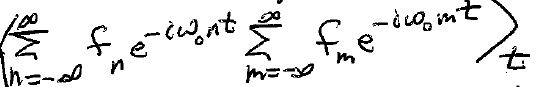 ⟨∑_{n=-∞}^{∞} f_n e^{-iω_0 nt} ∑_{m=-∞}^{∞} f_m e^{-iω_0 mt}⟩_t